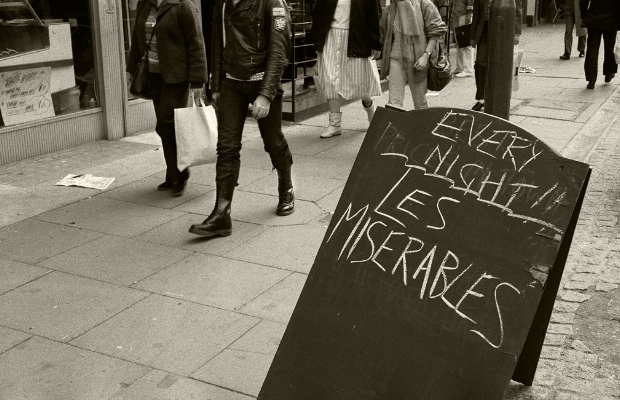 EVERY
NIGHT!!
LES
MISERABLES